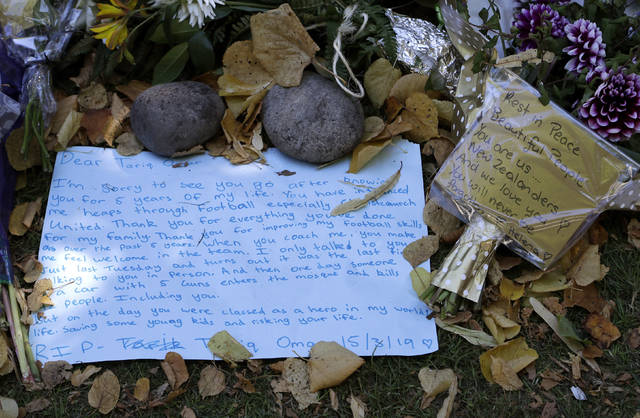 Dear Tariq
I'm Sorry to see you go after knowing
you for 5 years of my life. You have
me heaps through Football especially
United. Thank you for everything you've done
for my family. Thank you for improving my football skills
over the past 5 years. When you coach me, you make
me feel welcome in the team. I only talked to you
Just last Tuesday and turns out it was the last
talking to you in person. And then one day someone
a car with 5 Guns enters the mosque and kills
people. Including you.
But on the day you were classed as a hero in my world
life. Saving some young kids and risking your life.
R.I.P - Tariq Omar 15/3/19 ♡
Rest in Peace
Beautiful People
You are us...
New Zealanders
And we love you
You will never be